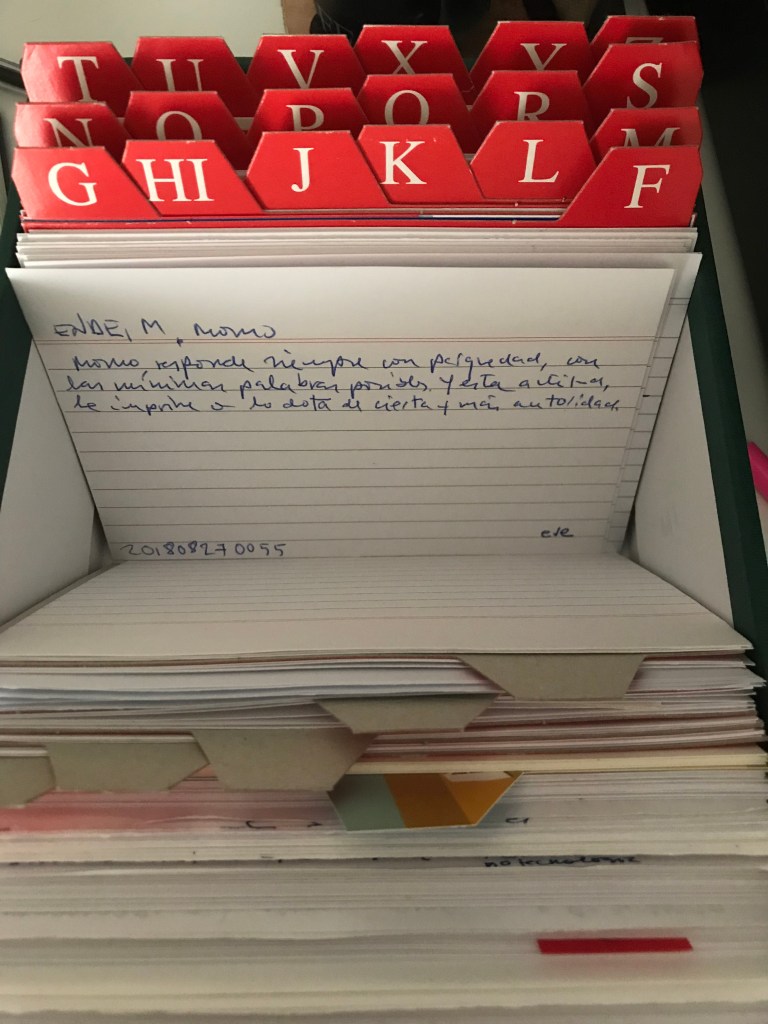 T U V X Y Z
N O P Q R S
M
G HI J K L F
ENDE, M. MOMO
Momo responde siempre con parquedad, con
las mínimas palabras posibles. Y esta actitud,
le imprime o lo dota de cierta y más autoridad.
201808270055
notecnologia